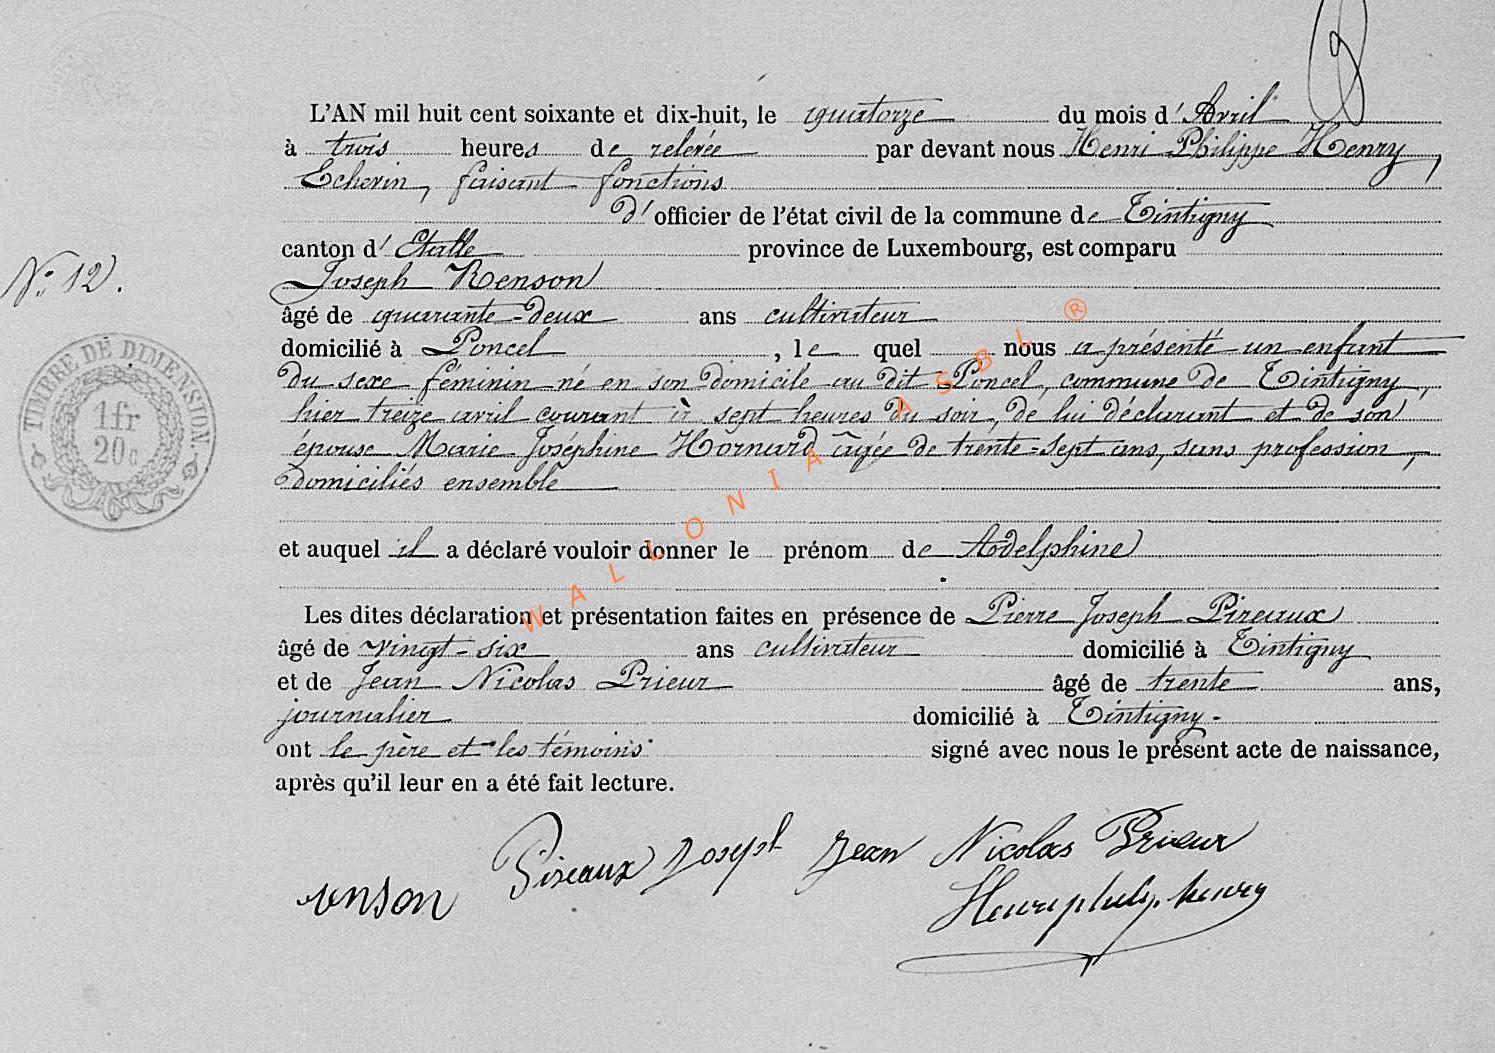 L'AN mil huit cent soixante et dix-huit, le quatorze du mois d'Avril
à trois heures de relevée par devant nous Henri Philippe Henry,
Echevin, faisant fonctions
d'officier de l'état civil de la commune de Tintigny
canton d'Etalle province de Luxembourg, est comparu
N° 12.
Joseph Renson
âgé de quarante-deux ans cultivateur
domicilié à Poncel, lequel nous a présenté un enfant
du sexe féminin né en son domicile au dit Poncel, commune de Tintigny,
hier treize avril courant à sept heures du soir, de lui déclarant et de son
épouse Marie Joséphine Hornard âgée de trente-sept ans, sans profession,
domiciliés ensemble
TIMBRE DE DIMENSION.
1fr
20c
et auquel il a déclaré vouloir donner le prénom de Adelphine
Les dites déclaration et présentation faites en présence de Pierre Joseph Pireaux
âgé de vingt-six ans cultivateur domicilié à Tintigny
et de Jean Nicolas Prieur âgé de trente ans,
journalier domicilié à Tintigny.
ont le père et les témoins signé avec nous le présent acte de naissance,
après qu'il leur en a été fait lecture.
Pireaux Joseph Jean Nicolas Prieur
WALLONIA ASBL ®